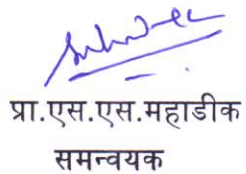 प्रा.एस.एस.महाडीक
समन्वयक